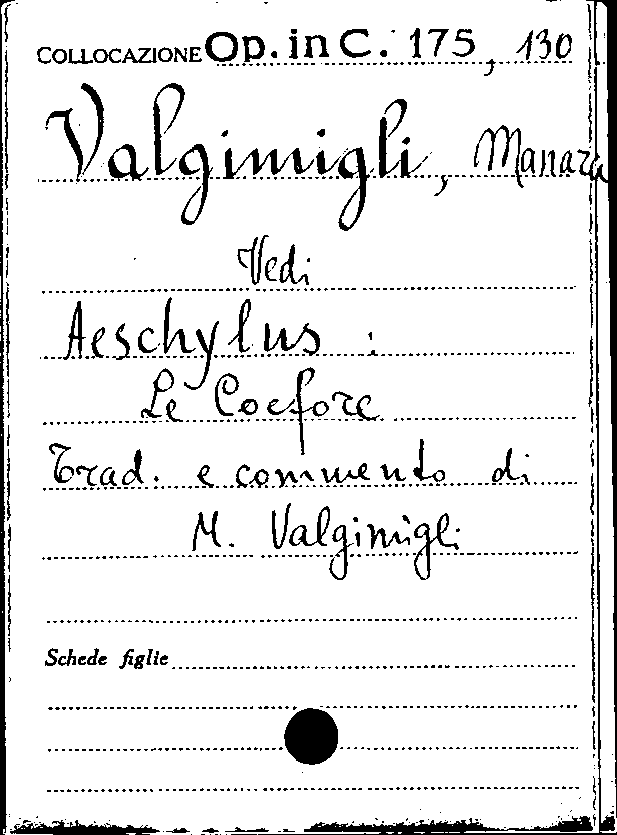 COLLOCAZIONE Op. in C. 175, 130
Valgimigli, Manara
Vedi
Aeschylus :
Le Coefore
Trad. e commento di
M. Valgimigli
Schede figlie